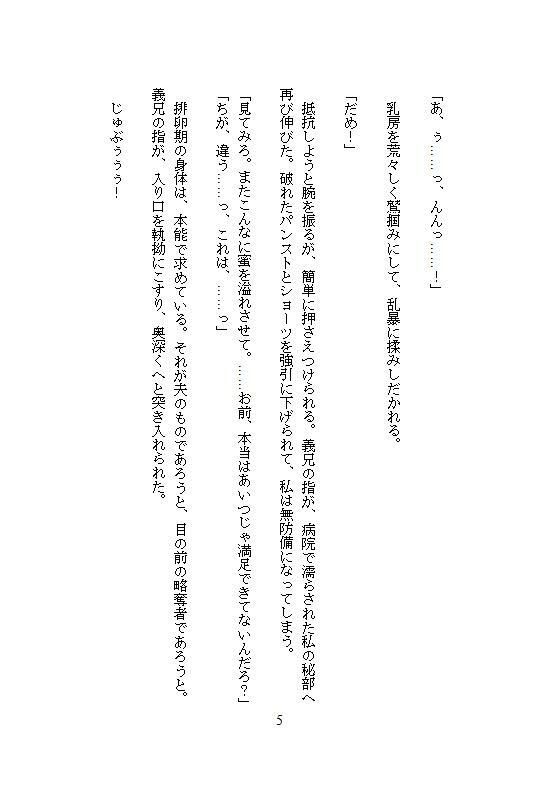 「あ、ぅ……っ、んんっ……！」
乳房を荒々しく鷲掴みにして、乱暴に揉みしだかれる。
「だめ！」
抵抗しようと腕を振るが、簡単に押さえつけられる。義兄の指が、病院で濡らされた私の秘部へ
再び伸びた。破れたパンストとショーツを強引に下げられて、私は無防備になってしまう。
「見てみろ。またこんなに蜜を溢れさせて。……お前、本当はあいつじゃ満足できてないんだろ？」
「ちが、違う……っ、これは、……っ」
排卵期の身体は、本能で求めている。それが夫のものであろうと、目の前の略奪者であろうと。
義兄の指が、入り口を執拗にこすり、奥深くへと突き入れられた。
じゅぶぅぅぅ！
5